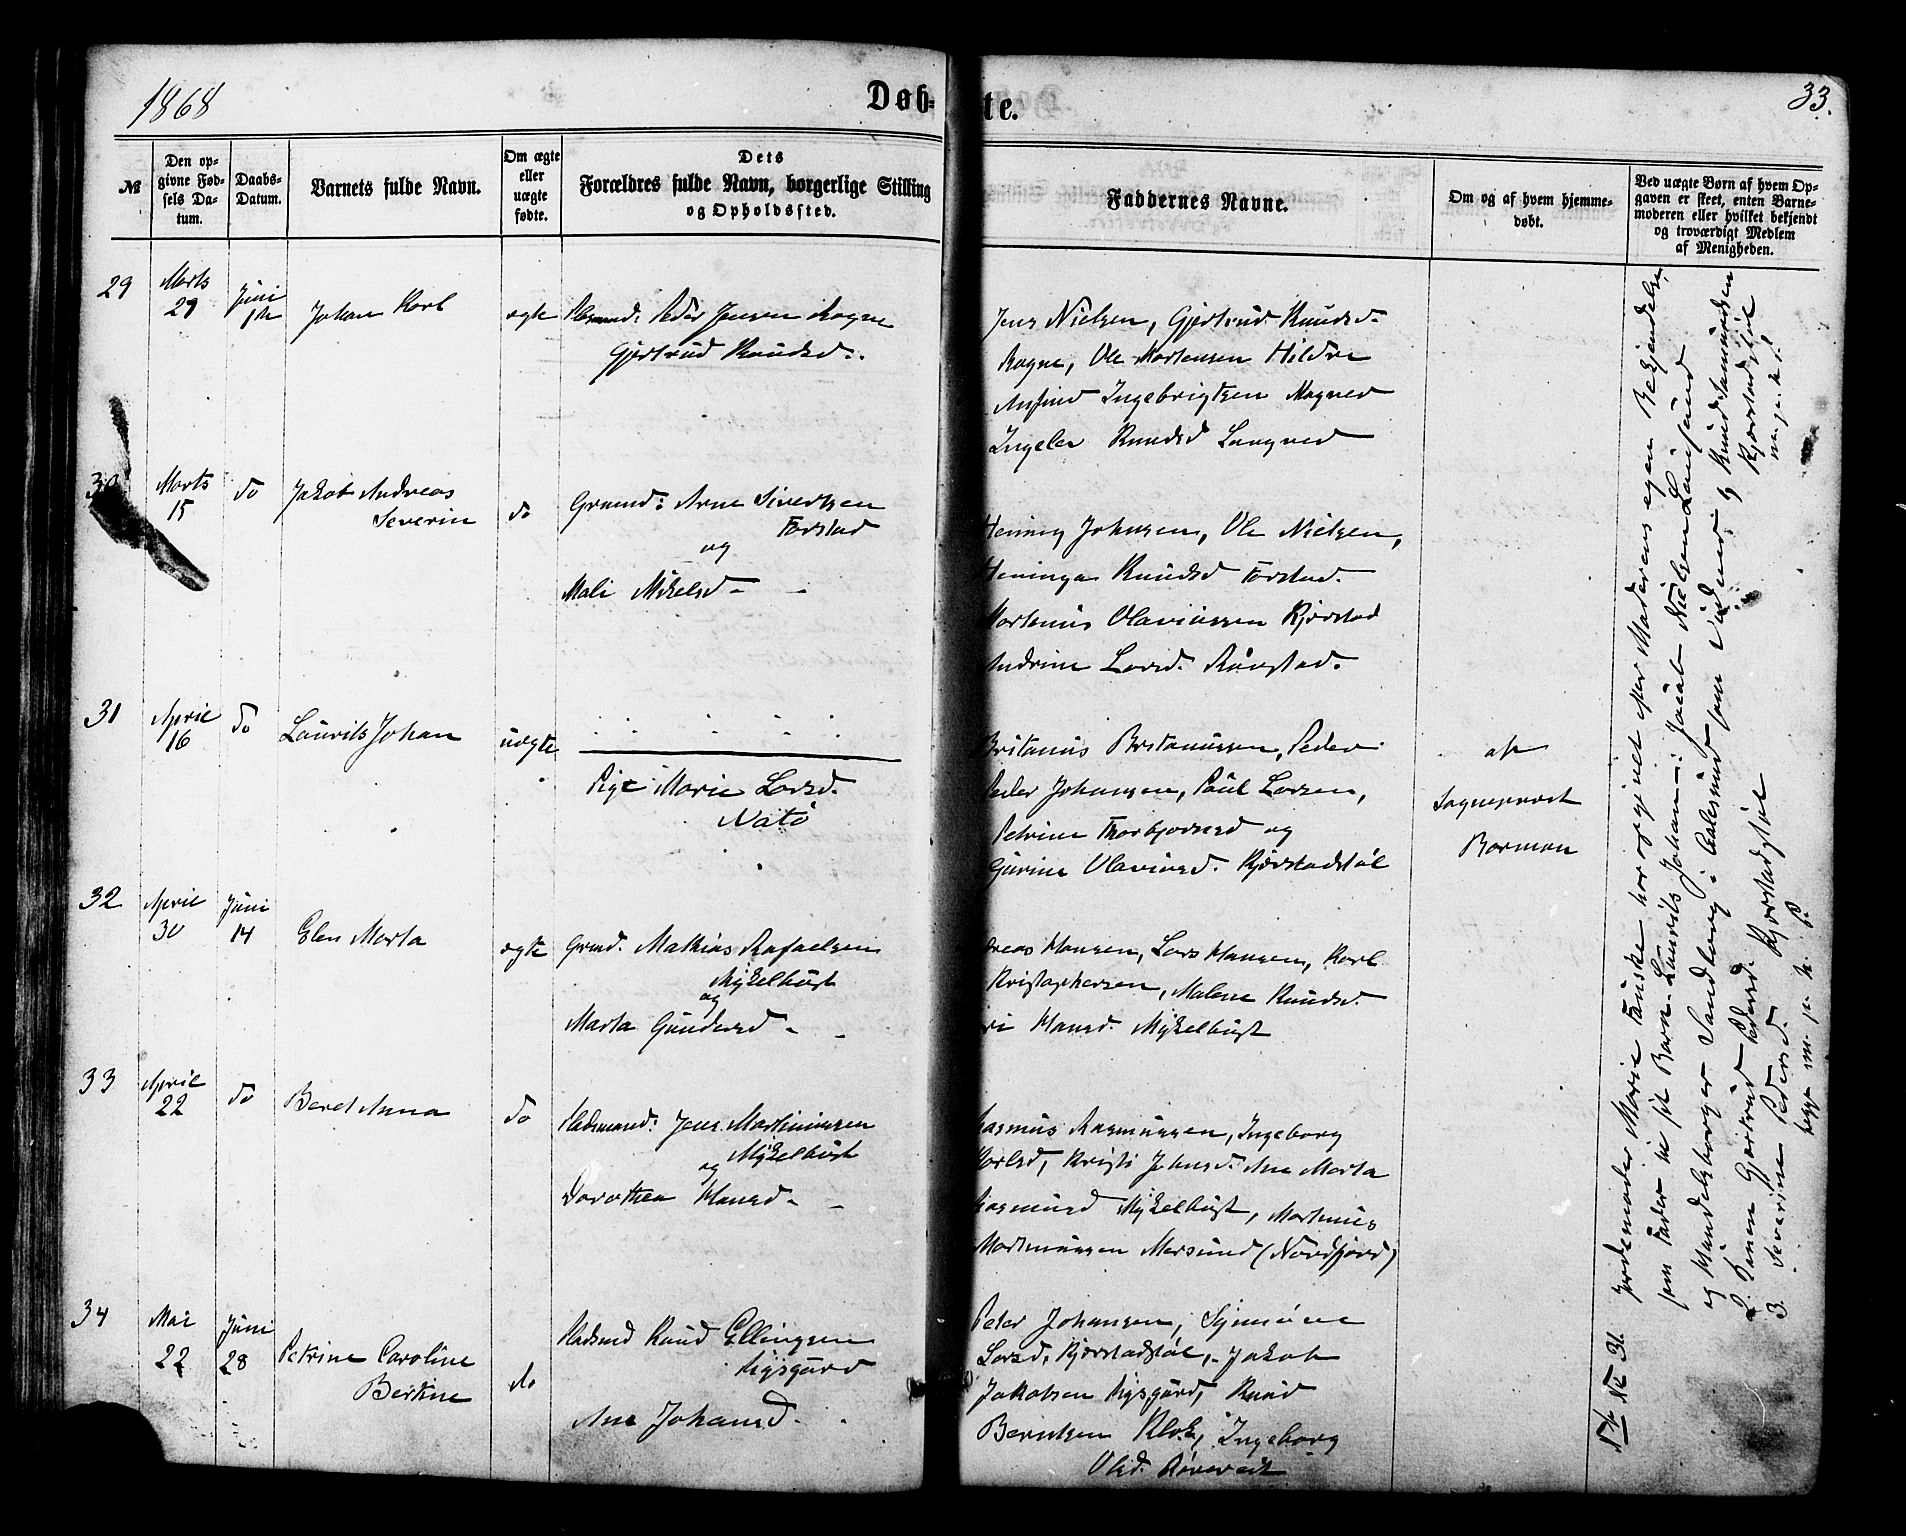 1868
Døb-
te.
33.
№
Den op-
givne Fød-
sels Da-
tum.
Daabs-
Datum.
Barnets fulde Navn.
Om ægte
eller
uægte
fødte.
Dets
Forældres fulde Navn, borgerlige Stilling
og Opholdssted.
Faddernes Navne.
Om og af hvem hjemme-
døbt.
Ved uægte Børn af hvem Op-
gaven er skeet, enten Barne-
moderen eller hvilket bekjendt
og troværdigt Medlem
af Menigheden.
29
Marts
29
Juni
14
Johan Karl
ægte
Peder Jensen Rogne
Gjertrud Knudsd.
Jens Nielsen, Gjertrud Knudsd.
Rogne, Ole Mortensen Hildre
Ansfind Ingebrigtsen Magned
Knudsd Longved
30
Marts
15
do
Jakob Andreas
Severin
do
Grmnd: Arne Sivertsen
Farstad
og
Mali Mikelsd -
Henning Johnsen, Ole Nielsen,
Heninga Knudsd Farstad.
Martinus Olaviussen Kjerstad
Andrine Larsd. Rønstad.
31
April
16
do
Laurits Johan
uægte
Pige Marie Larsd.
Nato
Britanus Britanussen, Peder
Peder Johansen, Paul Larsen,
Petrine Thorbjørnsd og
Gurine Olaviusd. Kjerstadstøl
af
Sogneprest
Borman
32
April
30
Juni
14
Elen Marta
ægte
Grmd. Mathias Rafaelsen
Mykelbust
og
Marta Gundersd -
Hansen, Lars Hansen, Karl
Kristophersen, Malene Knudsd.
Hansd. Mykelbust
33
April
22
do
Beret Anna
do
Huusmand: Jens Martinussen
Mykelbust
og
Dorothea Hansd -
Rasmus Rasmussen, Ingeborg
Karlsd, Kristi Johnsd. Ane Marta
Rasmusd Mykelbust, Martinus
Martinussen (Nordfjord)
34
Mai
22
Juni
28
Petrine Caroline
Bertine
do
Knud Ellingsen
Lysgård
Ane Johansd.
Peder Johansen, Synnøve
Larsd, Kjerstadstøl, Jakob
Jakobsen Lysgård, Knud
Berntsen Klok, Ingeborg
Olsd. Røvereit
No 31. Jordemoder Marie Fauske har opgivet efter Moderens egen Bekjendelse,
som Fader til sit Barn Laurits Johan: Jakob Nielsen Longsund
og Handelsborger Sandborg i Aalesund som Vidner: 1 Knud Samundsen
Kjerstadstøl
m. p. P.
2. Konen Gjertrud Pedersd. Kjerstadstøl
3. Severine Pedersd.
begge m. p. P.